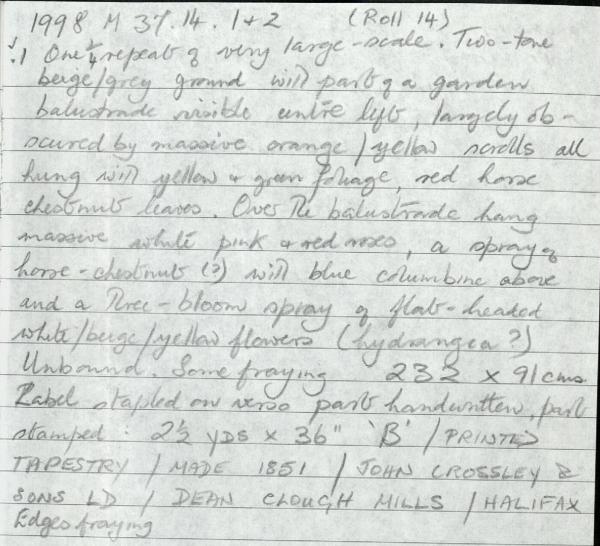 1998 M 37.14. 1+2 (Roll 14)
.1 One 1/4 repeat of very large-scale. Two-tone
beige/grey ground with part of a garden
balustrade visible centre left, largely ob-
scured by massive orange/yellow scrolls all
hung with yellow + green foliage, red horse
chestnut leaves. Over the balustrade hang
massive white pink + red roses, a spray of
horse-chestnut (?) with blue columbine above
and a three-bloom spray of flat-headed
white/beige/yellow flowers (hydrangea?)
Unbound. Some fraying 232 x 91cms
Label stapled on verso part handwritten, part
stamped: 2½ YDS x 36" 'B' / PRINTED
TAPESTRY / MADE 1851 / JOHN CROSSLEY &
SONS LD / DEAN CLOUGH MILLS / HALIFAX
Edges fraying